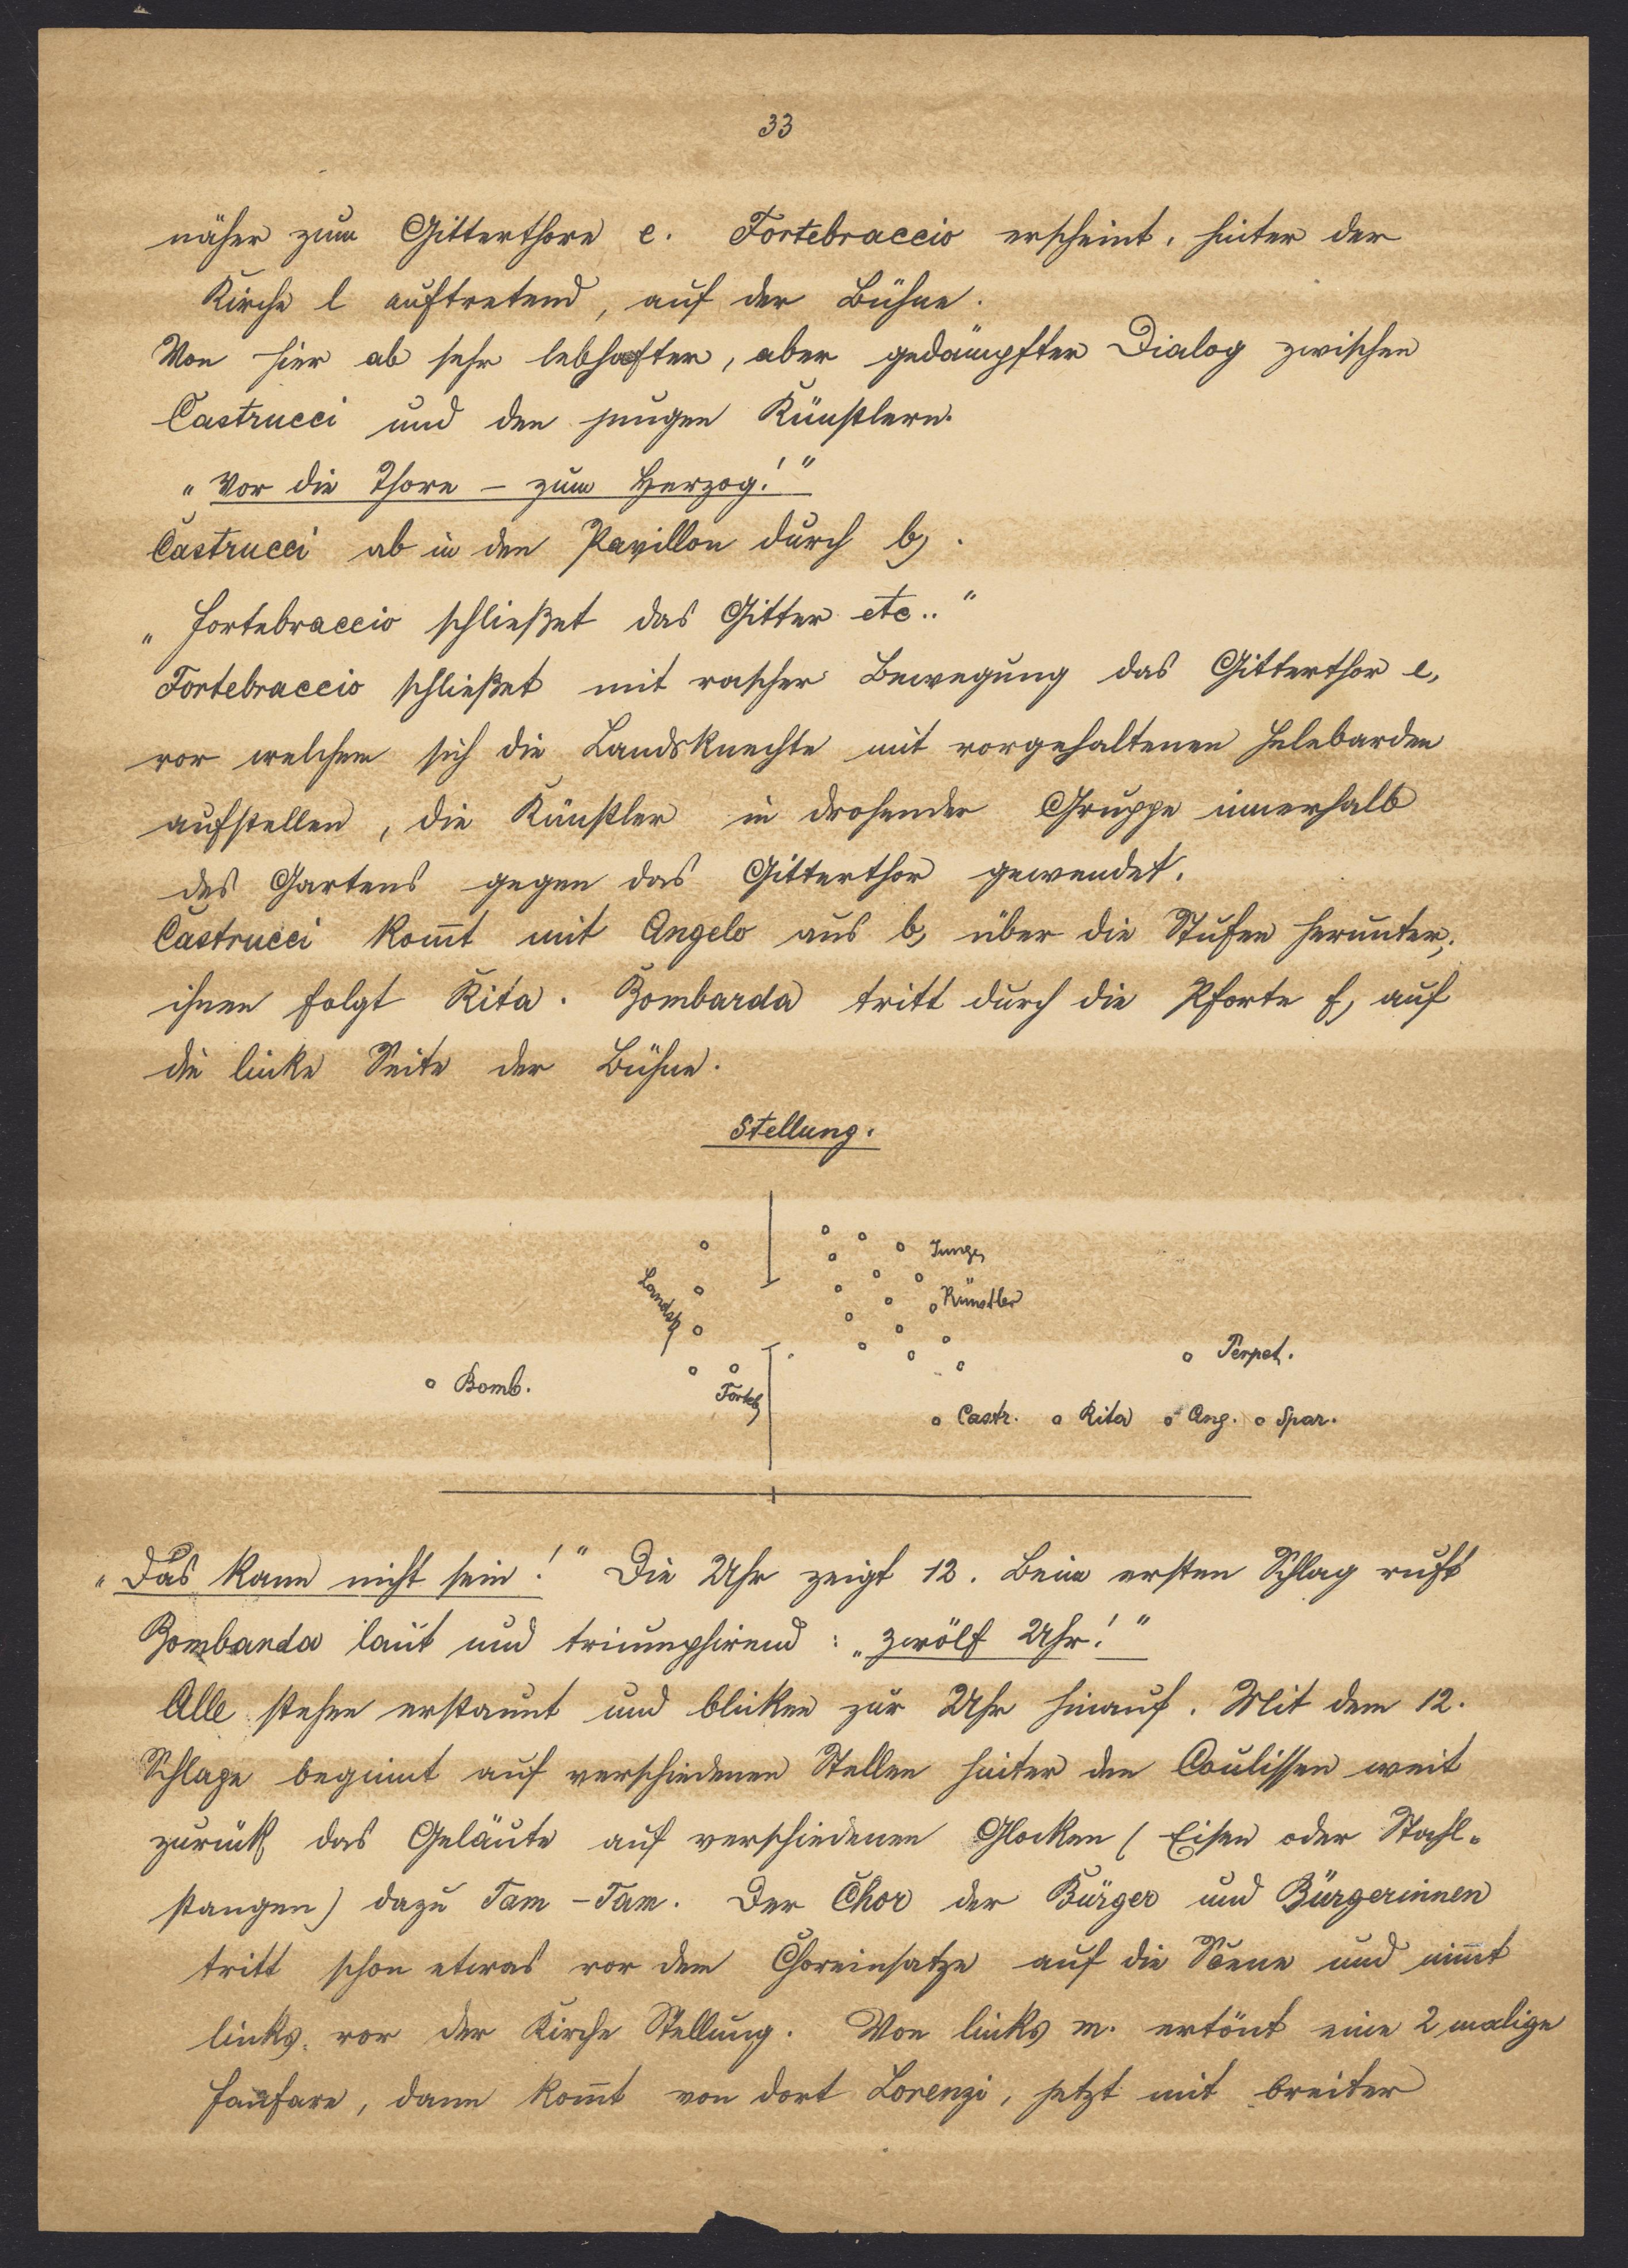 33
näher zum Gitterthore e. Fortebraccio erscheint, hinter der
Kirche l auftretend, auf der Bühne.
Von hier ab sehr lebhafter, aber gedämpfter Dialog zwischen
Castrucci und den jungen Künstlern.
„Vor die Thore – zum Herzog!“
Castrucci ab in den Pavillon durch b).
„Fortebraccio schließet das Gitter etc..“
Fortebraccio schließet mit rascher Bewegung das Gitterthor e,
vor welchem sich die Landsknechte mit vorgehaltenen Helebarden
aufstellen, die Künstler in drohender Gruppe innerhalb
des Gartens gegen das Gitterthor gewendet.
Castrucci kom̄t mit Angelo aus b, über die Stufen herunter,
ihnen folgt Rita. Bombarda tritt durch die Pforte f, auf
die linke Seite der Bühne.
Stellung.
Junge
Landsk
Künstler
Perpet.
Bomb.
Forteb
Castr. Rita Ang. Spar.
„Das kann nicht sein!“ Die Uhr zeigt 12. Beim ersten Schlag ruft
Bombarda laut und triumphirend: „zwölf Uhr!“
Alle stehen erstaunt und blicken zur Uhr hinauf. Mit dem 12.
Schlage beginnt auf verschiedenen Stellen hinter den Coulissen weit
zurück das Geläute auf verschiedenen Glocken (Eisen oder Stahl-
stangen) dazu Tam-Tam. Der Chor der Bürger und Bürgerinnen
tritt schon etwas vor dem Choreinsatze auf die Scene und nim̄t
links vor der Kirche Stellung. Von links m. ertönt eine 2 malige
Fanfare, dann kom̄t von dort Lorenzi, jetzt mit breiter